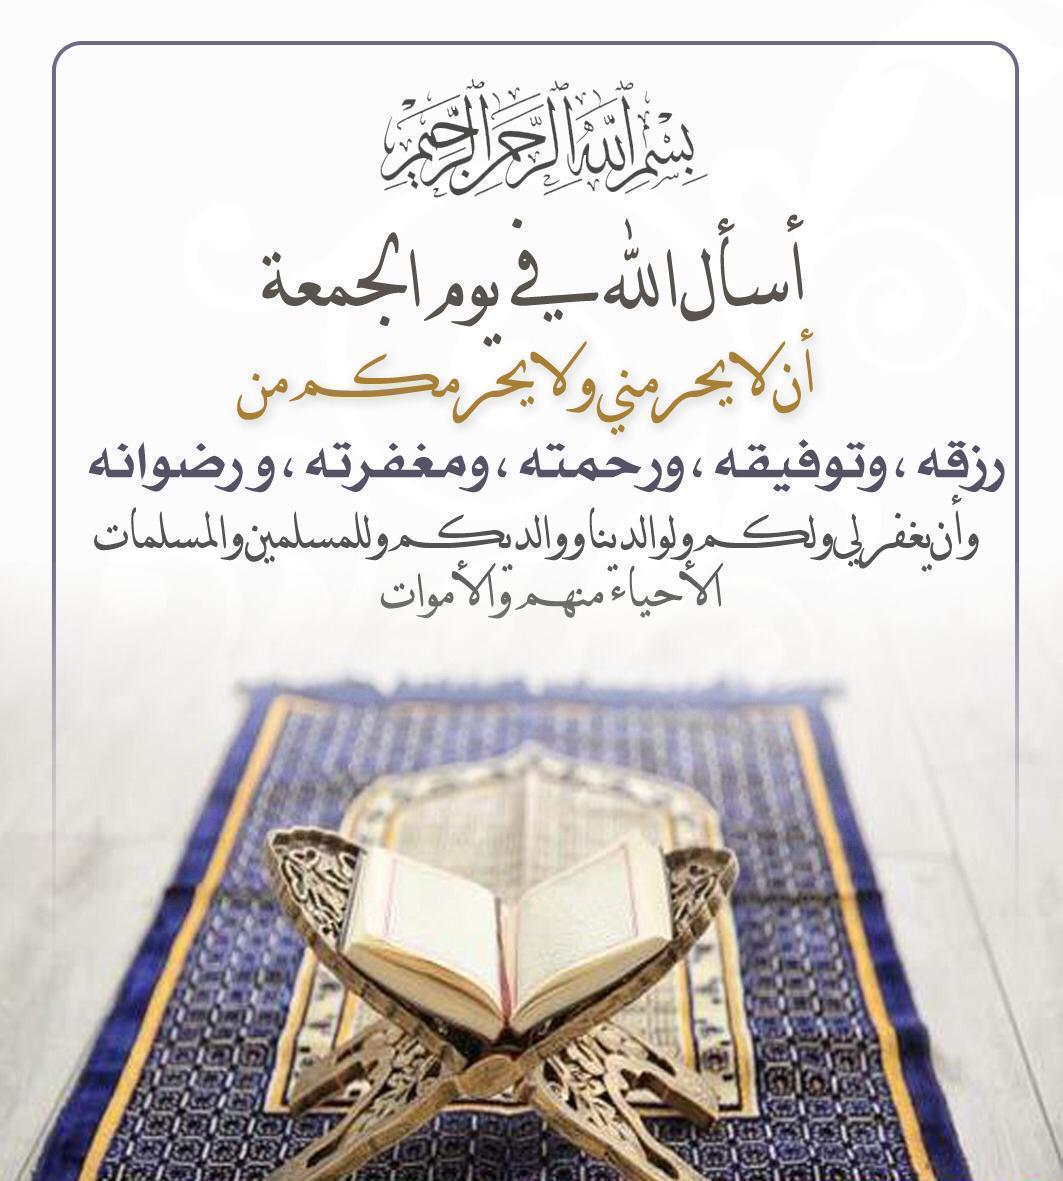 بسم الله الرحمن الرحيم
أسأل الله في يوم الجمعة
أن لا يحرمني ولا يحرمكم من
رزقه ، وتوفيقه ، ورحمته ، ومغفرته ، ورضوانه
وأن يغفر لي ولكم ولوالدينا ووالديكم وللمسلمين والمسلمات
الأحياء منهم والأموات